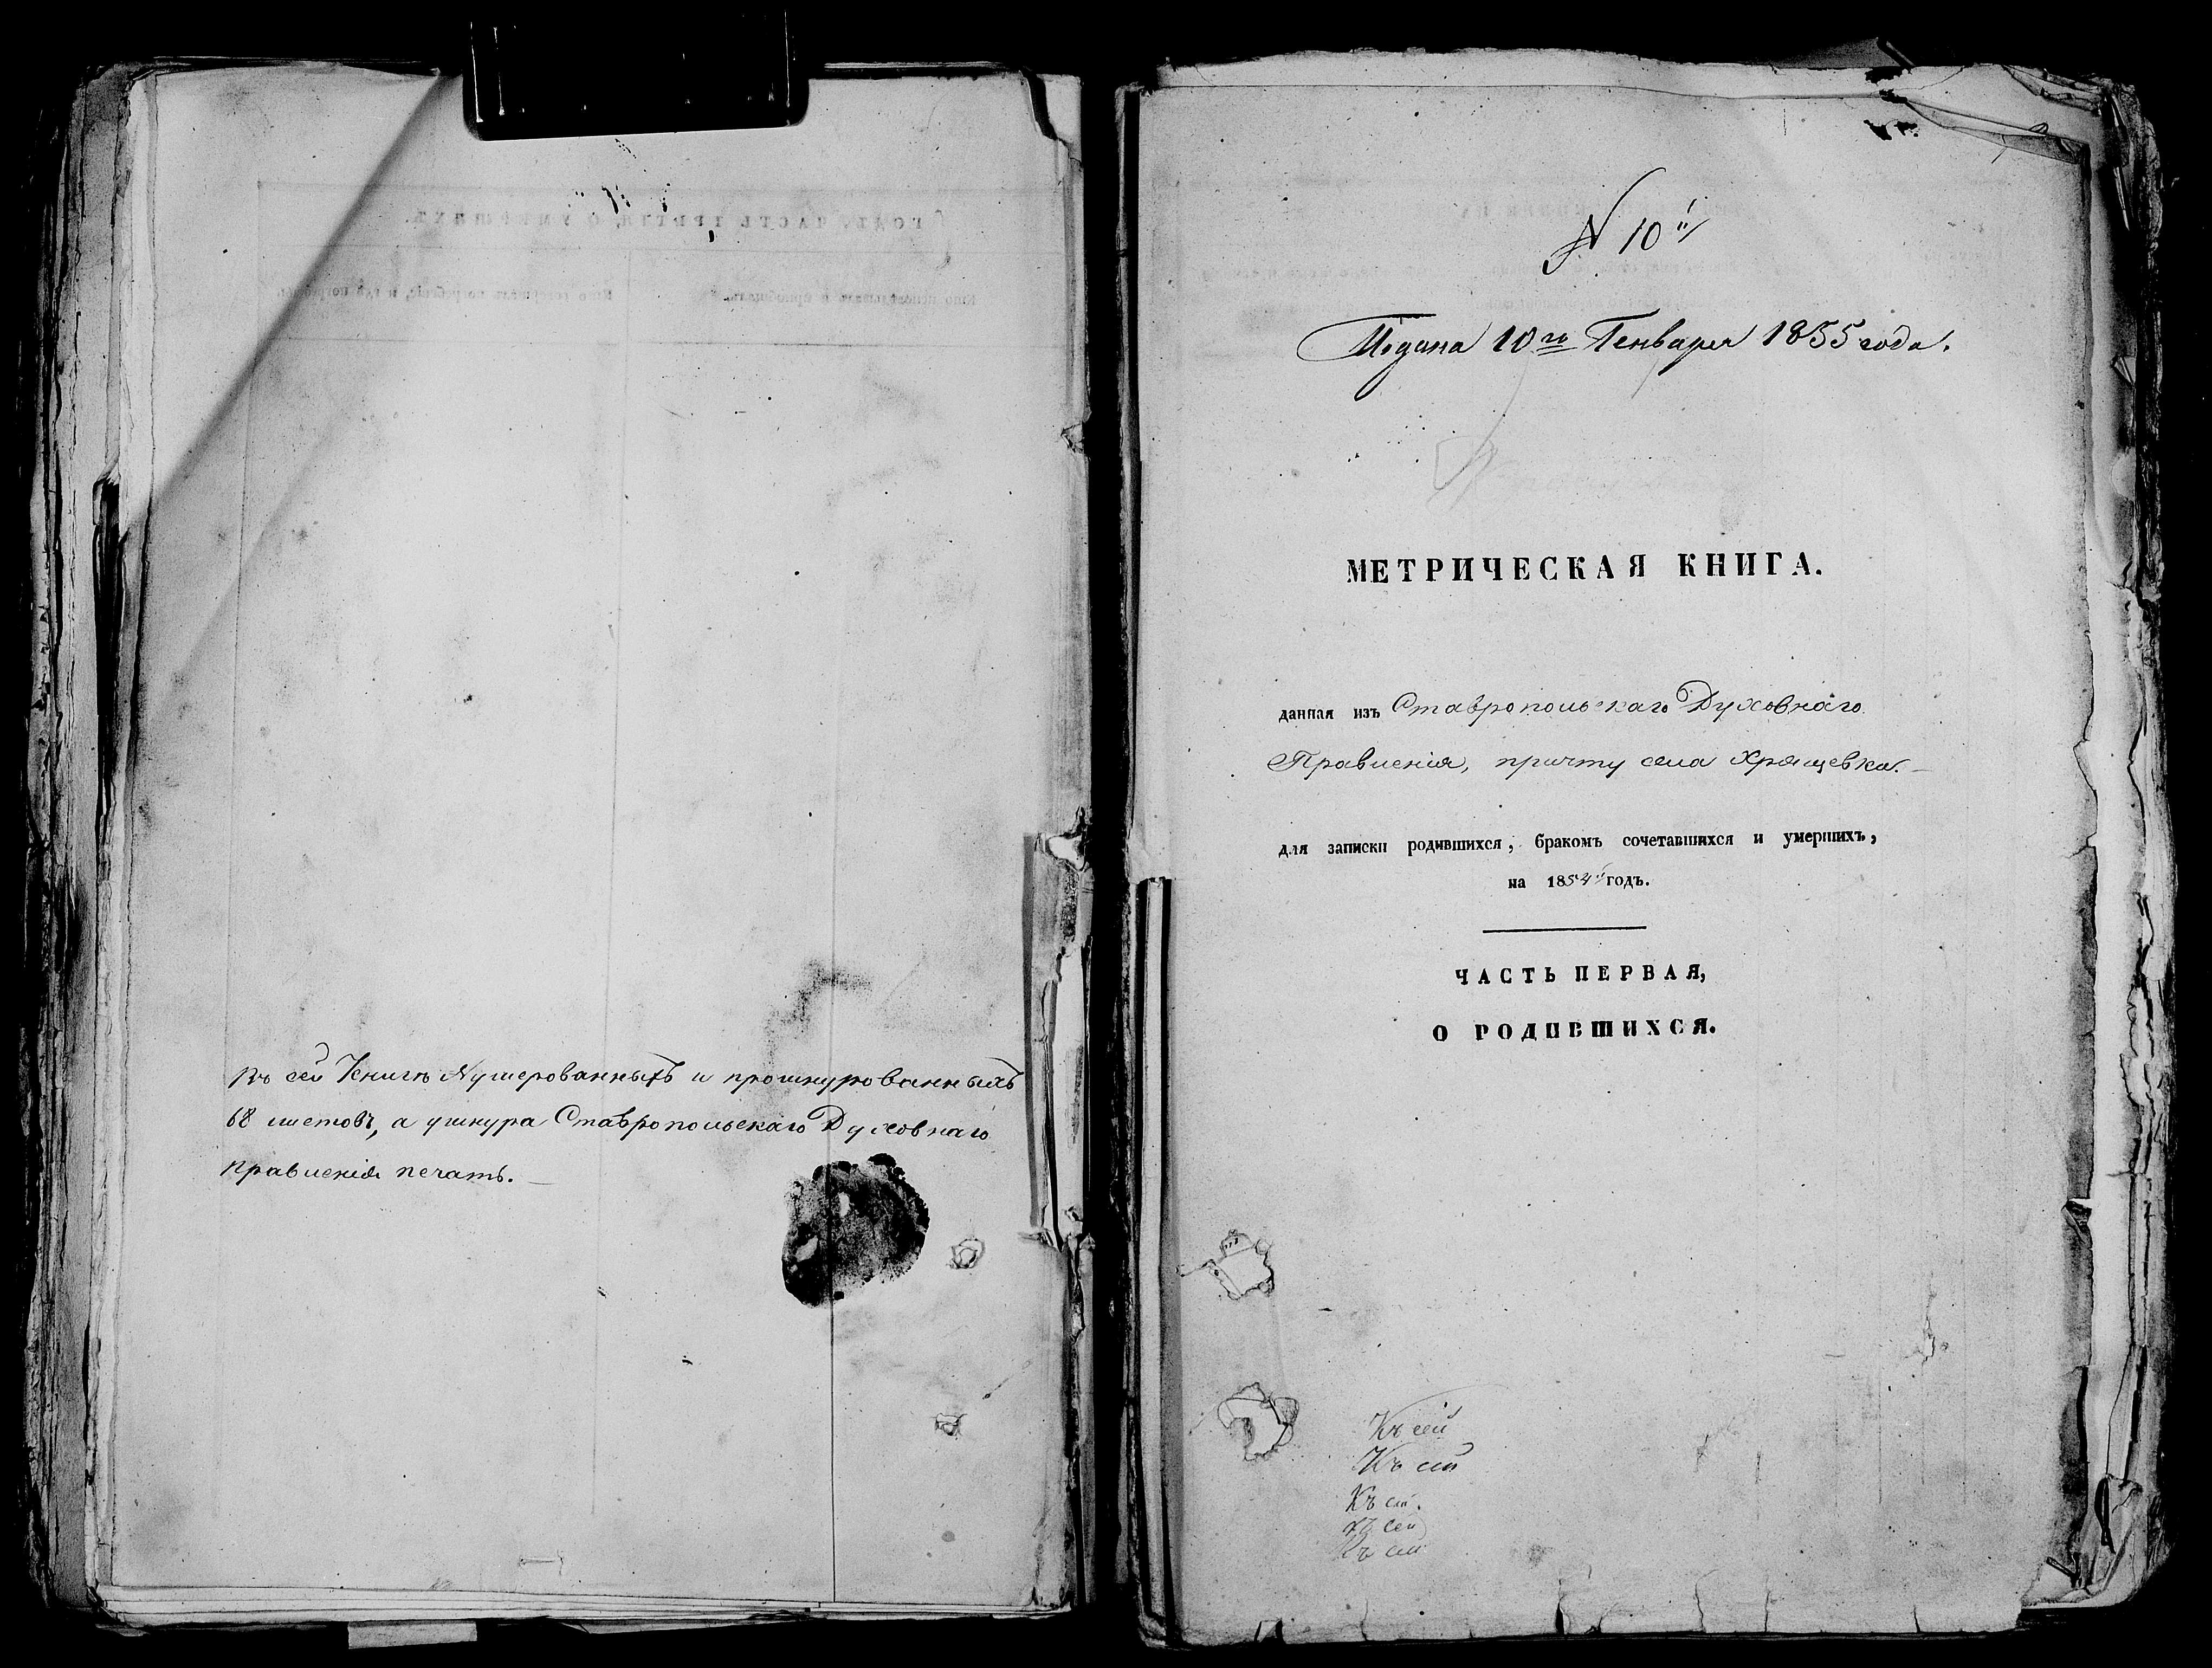 Въ сей Книгѣ Нумерованныхъ и прошнурованныхъ
68 листовъ, а у шнура Ставропольскаго Духовнаго
Правленія печать.
N 10й
Подана 10го Генваря 1855 года.
МЕТРИЧЕСКАЯ КНИГА.
данная изъ Ставропольскаго Духовнаго
Правленія, причту села Хрящевка.
для записки родившихся, бракомъ сочетавшихся и умершихъ,
на 1854й годъ.
ЧАСТЬ ПЕРВАЯ,
О РОДИВШИХСЯ.
Къ сей
Къ сей
Къ сей
Къ сей
Къ сей